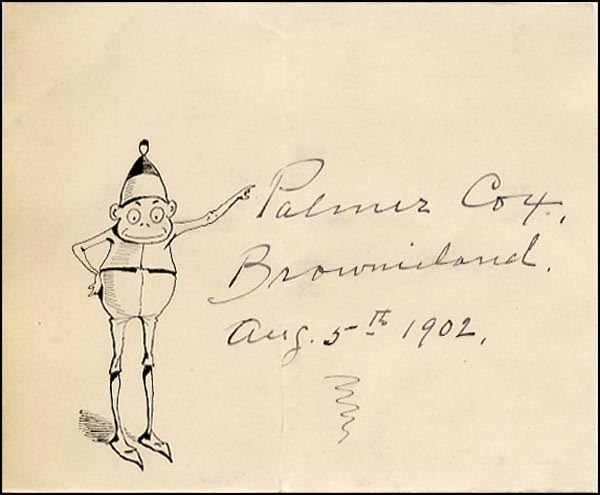 Palmer Cox.
Brownieland.
Aug. 5th 1902.